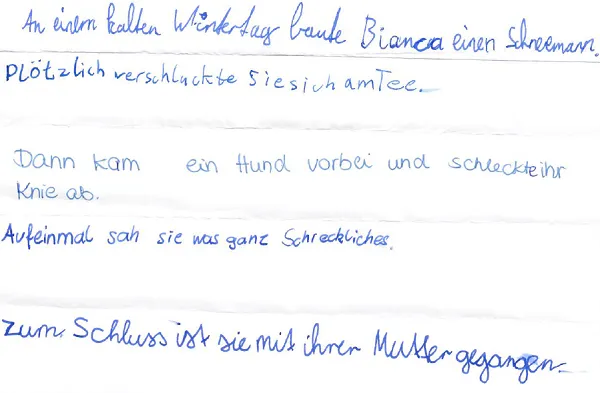 An einem kalten Winkertag baute Bianca einen Schneemann.
Plötzlich verschluckte Sie sich am Tee.
Dann kam ein Hund vorbei und schleckte ihr
Knie ab.
Aufeinmal sah sie was ganz Schreckliches.
Zum Schluss ist sie mit ihrer Mutter gegangen.